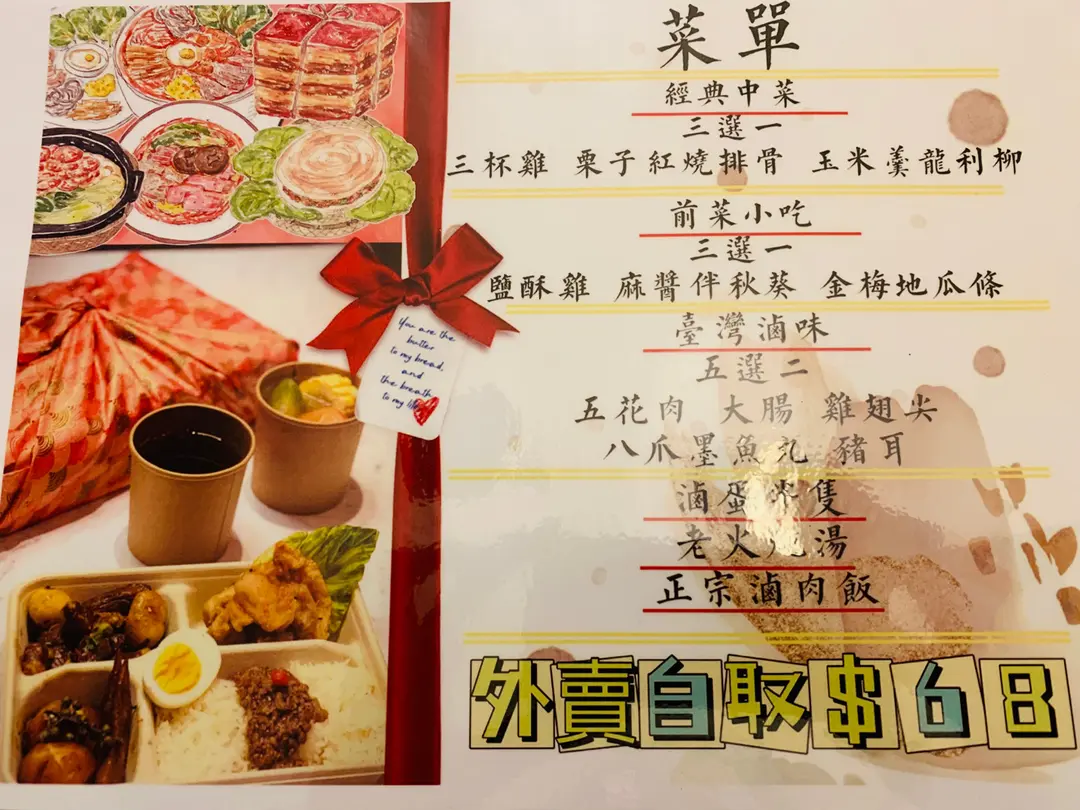 菜單
經典中菜
三選一
三杯雞 栗子紅燒排骨 玉米羹龍利柳
前菜小吃
三選一
鹽酥雞 麻醬伴秋葵 金梅地瓜條
臺灣滷味
五選二
五花肉 大腸 雞翅尖
八爪墨魚丸 豬耳
滷蛋半隻
老火 湯
正宗滷肉飯
外賣自取$68
You are the
butter
to my bread,
and
the breath
to my life